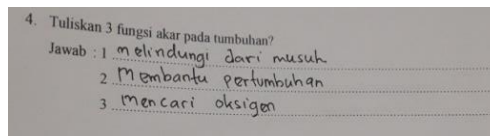 4. Tuliskan 3 fungsi akar pada tumbuhan?
Jawab : 1 melindungi dari musuh
2 Membantu pertumbuhan
3 mencari oksigen